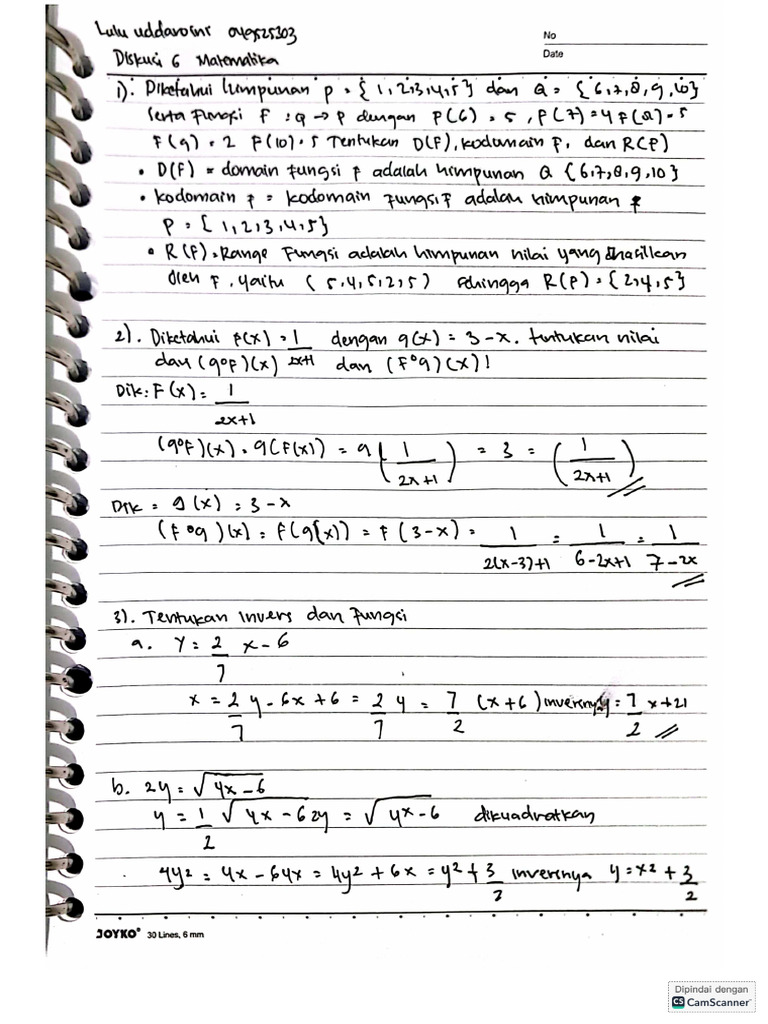 Lulu uddarosni
No
Diskusi 6 Matematika
Date
1). Diketahui himpunan P = {1,2,3,4,5} dan Q = {6,7,8,9,10}
Serta Fungsi F : Q → P dengan P(6) = 5, P(7) = 4 F(8) = 5
F(9) = 2 F(10) = 5 Tentukan D(F), kodomain F, dan R(F)
• D(F) = domain fungsi F adalah himpunan Q {6,7,8,9,10}
• Kodomain F = kodomain fungsi F adalah himpunan
P = {1,2,3,4,5}
• R(F) = Range Fungsi adalah himpunan nilai yang dihasilkan
oleh F, yaitu (5,4,5,2,5) sehingga R(F) = {2,4,5}
2). Diketahui F(x) = 1/2x+1 dengan g(x) = 3-x. tentukan nilai
dari (g°F)(x) dan (F°g)(x)!
Dik: F(x) = 1/2x+1
(g°F)(x) = g(F(x)) = g (1/2x+1) = 3 = (1/2x+1)
Dik = g(x) = 3-x
(F°g)(x) = F(g(x)) = F(3-x) = 1/2(x-3)+1 = 1/6-2x+1 = 1/7-2x
3). Tentukan Invers dan Fungsi
a. Y = 2/7 x-6
x = 2/7 y - 6x + 6 = 2/7 y = 7/2 (x+6) inversnya y = 7/2 x+21
b. 2y = √4x-6
y = 1/2 √4x-6 2y = √4x-6 dikuadratkan
4y² = 4x - 6 4x = 4y² + 6x = y² + 3/2 inversnya y = x² + 3/2
JOYKO® 30 Lines, 6 mm
Dipindai dengan
CS CamScanner